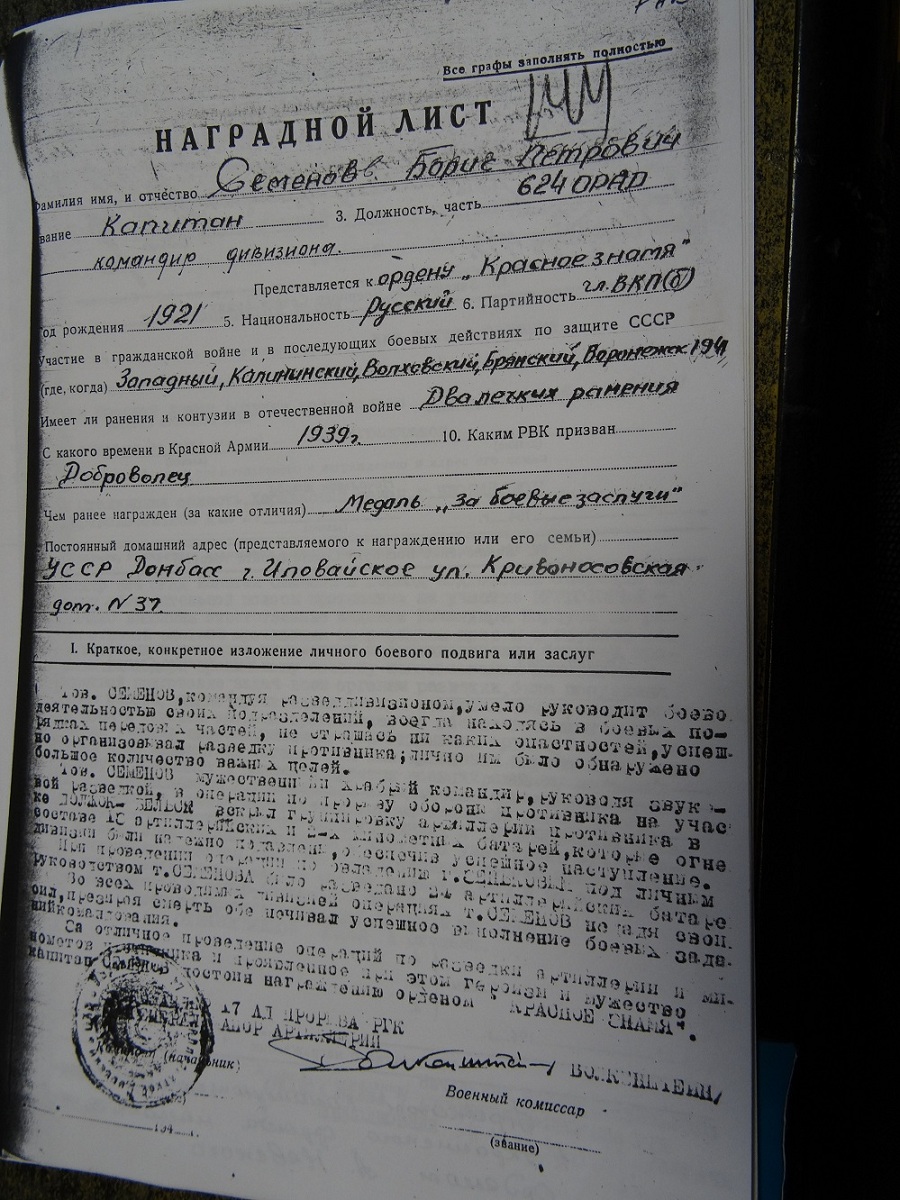 Все графы заполнять полностью
НАГРАДНОЙ ЛИСТ
Фамилия имя, и отчество Семенов Борис Петрович
звание Капитан 3. Должность, часть 624 ОРАД
командир дивизиона.
Представляется к ордену „Красное знамя"
год рождения 1921 5. Национальность Русский 6. Партийность чл.ВКП(б)
Участие в гражданской войне и в последующих боевых действиях по защите СССР
(где, когда) Западный, Калининский, Волховский, Брянский, Воронежск 1941
Имеет ли ранения и контузии в отечественной войне Два легких ранения
С какого времени в Красной Армии 1939г 10. Каким РВК призван
Доброволец
Чем ранее награжден (за какие отличия) Медаль „За боевые заслуги"
Постоянный домашний адрес (представляемого к награждению или его семьи)
УССР Донбасс г. Иловайское ул. Кривоносовская
дом. N 37
I. Краткое, конкретное изложение личного боевого подвига или заслуг
Тов. СЕМЕНОВ, командуя разведдивизионом, умело руководит боево
деятельностью своих подразделений, всегда находясь в боевых по-
рядках передовых частей, не страшась ни каких опастностей, успеш-
но организовывал разведку противника; лично им было обнаружено
большое количество важных целей.
Тов. СЕМЕНОВ мужественный храбрый командир, руководя звуко-
вой разведкой, в операции по прорыву обороны противника на учас
ке вскрыл группировку артиллерии противника в
составе артиллерийских и 2-х минометных батарей, которые огне
дивизии были надежно подавлены, обеспечив успешное наступление.
При проведении операции по овладению г. под личным
руководством т. СЕМЕНОВА было разведано 24 артиллерийских батаре
Во всех проводимых дивизией операциях т. СЕМЕНОВ не щадя свои
сил, презирая смерть обеспечивал успешное выполнение боевых зада
ний командования.
За отличное проведение операций по разведки артиллерии и ми-
нометов противника и проявленное при этом героизм и мужество
капитан СЕМЕНОВ достоин награждению орденом "КРАСНОЕ ЗНАМЯ".
17 АД ПРОРЫВА РГК
МАЙОР АРТИЛЛЕРИИ
(начальник) ВОЛКЕНШТЕЙН/
Военный комиссар
194 г.
(звание)